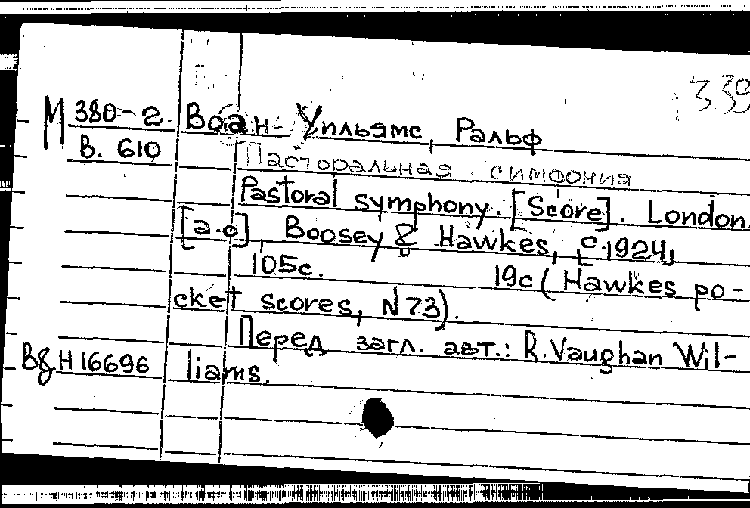 339
М 380-2 Воан-Уильямс, Ральф
В. 610
Пасторальная симфония
Pastoral symphony. [Score]. London
[a.o] Boosey & Hawkes, c.1924,
105c. 19c (Hawkes po-
cket scores, N 73).
Перед загл. авт.: R.Vaughan Wil-
H 16696 liams.